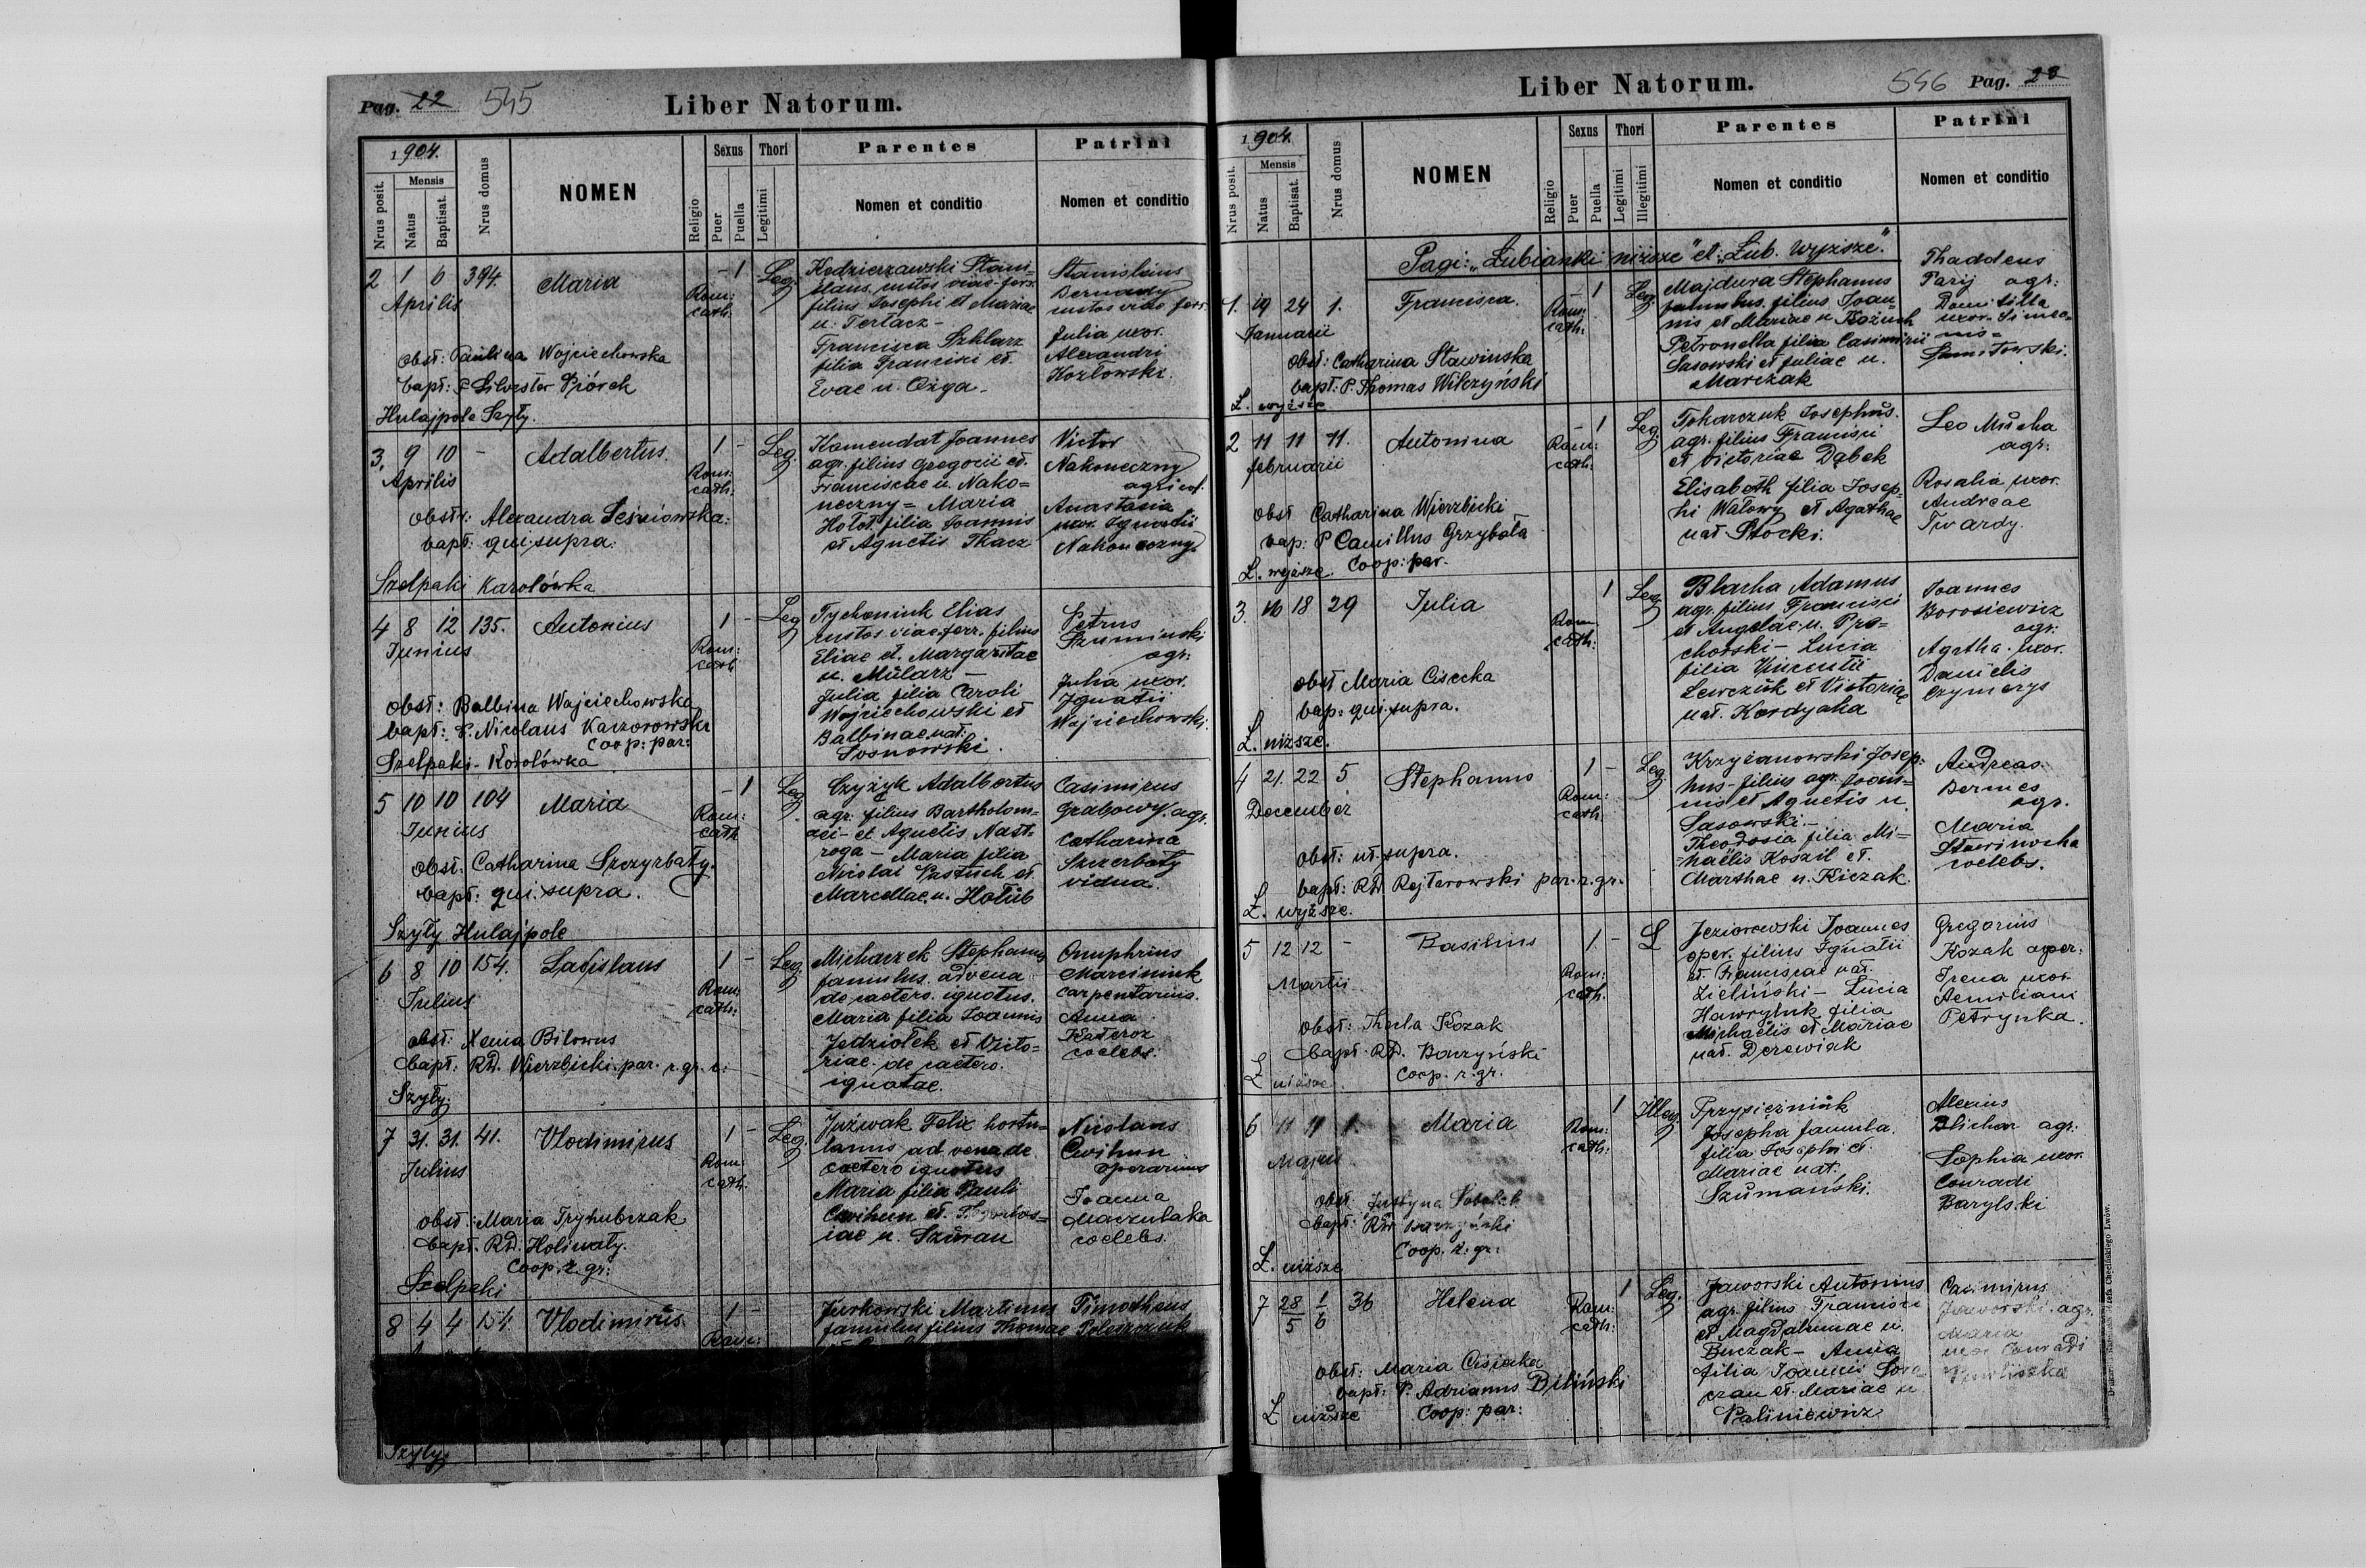 Pag. 22 545 Liber Natorum.
1904.
Nrus posit.
Mensis
Natus
Baptisat.
Nrus domus
NOMEN
Religio
Sexus
Puer
Puella
Thori
Legitimi
Parentes
Nomen et conditio
Patrini
Nomen et conditio
2 1 6 394. Maria - 1 Leg.
Aprilis
Rom:
cath:
Obst: Paulina Wojciechowska
bapt: P Silvester Piórek
Hulajpole Szyły.
Kedzierzawski Stani=
slaus custos viae ferr.
filius Josephi et Mariae
n. Tertacz -
Francisca Szklarz
filia Francisci et
Evae n. Ożga -
Stanislaus
Bernady
custos viae ferr.
Julia uxor.
Alexandri
Kozlowski.
3, 9 10 - Adalbertus. 1 - Leg.
Aprilis
Rom:
cath:
obstr: Alexandra Leśniowska:
bapt: qui supra:
Szelpaki Karolówka
Komendat Joannes
agr. filius Gregorii et.
Franciscae n. Nako=
neczny = Maria
Hołot. filia Joannis
et Agnetis Tkacz
Victor
Nakoneczny
agricol.
Anastasia
uxor. Ignatii
Nakoneczny
4 8 12 135. Antonius 1 - Leg
Junius
Rom:
cath
obst: Balbina Wojciechowska
bapt: P. Nicolaus Kaczorowski
Coop: par:
Szelpaki - Korolówka
Tychoniuk Elias
custos viae ferr. filius
Eliae et. Margaritae
n. Mularz -
Julia filia Caroli
Wojciechowski et
Balbinae nat:
Sosnowski.
Petrus
Szuminski
agr:
Julia uxor.
Ignatii
Wojciechowski.
5 10 10 104 Maria - 1 Leg.
Junius
Rom:
cath
obst: Catharina Szczyrbaty.
bapt: qui supra.
Szyły Hulajpole
Czyżyk Adalbertus
agr: filius Bartholom=
aei - et Agnetis Nast.
roga - Maria filia
Nicolai Pastuch et
Marcellae. n. Hołub
Casimirus
Grabowy. agr.
Catharina
Szczerbaty
vidua.
6 8 10 154. Ladislaus 1 - Leg.
Julius
Rom:
cath:
obst: Xenia Bilowus
bapt: RD. Wierzbicki. par. r. gr. c:
Szyły:
Michaczek Stephanus
famulus. advena
de caetero. ignotus.
Maria filia Joannis
Jedziołek et Victo=
riae. de caetero.
ignotae.
Onuphrius
Marciniuk
carpentarius.
Anna
Kateroz
coelebs.
7 31. 31. 41. Vlodimirus 1 - Leg.
Julius
Rom:
cath.
obst: Maria Tryhubczak
bapt. RD. Holiwaty.
Coop. r. gr:
Szelpaki
Juźwak Felix hortu=
lanus advena de
caetero ignotus
Maria filia Pauli
Cwihun et.
iae n. Szuran
Nicolaus
Cwihun
operarius
Joanna
Maczulaka
coelebs.
8 4 4 154. Vlodimirus. 1 -
Rom:
Jurkowski Martinus
famulus filius Thomae
Timotheus
Poleszczuk
Szyły
Liber Natorum. 546 Pag. 23
1904.
Nrus posit.
Mensis
Natus
Baptisat.
Nrus domus
NOMEN
Religio
Sexus
Puer
Puella
Thori
Legitimi
Illegitimi
Parentes
Nomen et conditio
Patrini
Nomen et conditio
Pagi: "Łubianki niższe" et "Łub. wyższe".
1. 19 24 1. Francisca. - 1 Leg.
Januarii
Rom:
cath:
Obst: Catharina Stawinska
bapt: P. Thomas Wilczyński
Ł. wyższe
Majdura Stephanus
famulus. filius Joan=
nis et Mariae n Kożuch
Petronella filia Casimirii
Sasowski et Juliae n.
Marczak
Thaddeus
Parij agr:
Domitilla
uxor. Simeo=
nis =
2 11 11 11. Antonina - 1 Leg.
februarii
Rom:
cath:
obst Catharina Wierzbicki
bap: P Camillus Grzybała
Coop: par.
Ł. wyższe.
Tokarczuk Josephus.
agr. filius Francisci
et Victoriae Dąbek
Elisabeth filia Josep=
hi Watowy et Agathae
nat Stocki.
Leo Mucha
agr:
Rosalia uxor.
Andreae
Twardy.
3. 16 18 29 Julia 1 Leg.
Rom
cath:
obst Maria Cisecka
bap: qui supra.
Ł. niższe.
Blacha Adamus
agr. filius Francisci
et Angelae n. Pro=
chorski - Lucia
filia Vincentii
Lewczuk et Victoriae
nat. Kordyaka
Joannes
Borosiewicz
agr:
Agatha. uxor.
Danielis
Czymerys
4 21. 22 5 Stephanus 1 - Leg.
December
Rom:
cath.
obst: ut supra.
bapt: RD. Rejterowski par. r. gr.
Ł. wyższe.
Krzyżanowski Josep:
hus - filius agr. Joan=
nis et Agnetis n
Sasowski -
Theodosia filia Mi=
haëlis Koszil et.
Marthae n. Kiczak.
Andreas
Bermes
agr.
Maria
coelebs.
5 12 12 - Basilius 1 - L
Martii
Rom:
cath.
Obst: Thecla Kozak
bapt. RD. Baczyński
Coop. r. gr.
Ł niższe.
Jeziorowski Joannes
oper. filius Ignatii
et. Franciscae nat.
Zieliński - Lucia
Hawryluk filia
Michaelis et Mariae
nat. Derewiak
Gregorius
Kozak oper:
Irena uxor
Aemiliani
Petrynka.
6 11 11 1. Maria 1 Illeg.
Majus
Rom:
cath:
obst. Justyna
bapt: RD. Baczyński
Coop. r. gr:
Ł. niższe
Przysiężniuk
Josepha famula.
filia Josephi et.
Mariae nat:
Szumański.
Alexius
Blichar agr:
Sophia uxor.
Conradi
Barylski
7 28/5 1/6 36 Helena 1 Leg.
Rom:
cath:
obst: Maria Cisiecka
bapt: P. Adrianus Biliński
Coop: par:
Ł niższe
Jaworski Antonius
agr. filius Francisci
et Magdalenae n.
Buczak - Anna
filia Joannis
et Mariae n
Paliniewicz
Casimirus
Jaworski. agr.
Maria
uxor Conradi